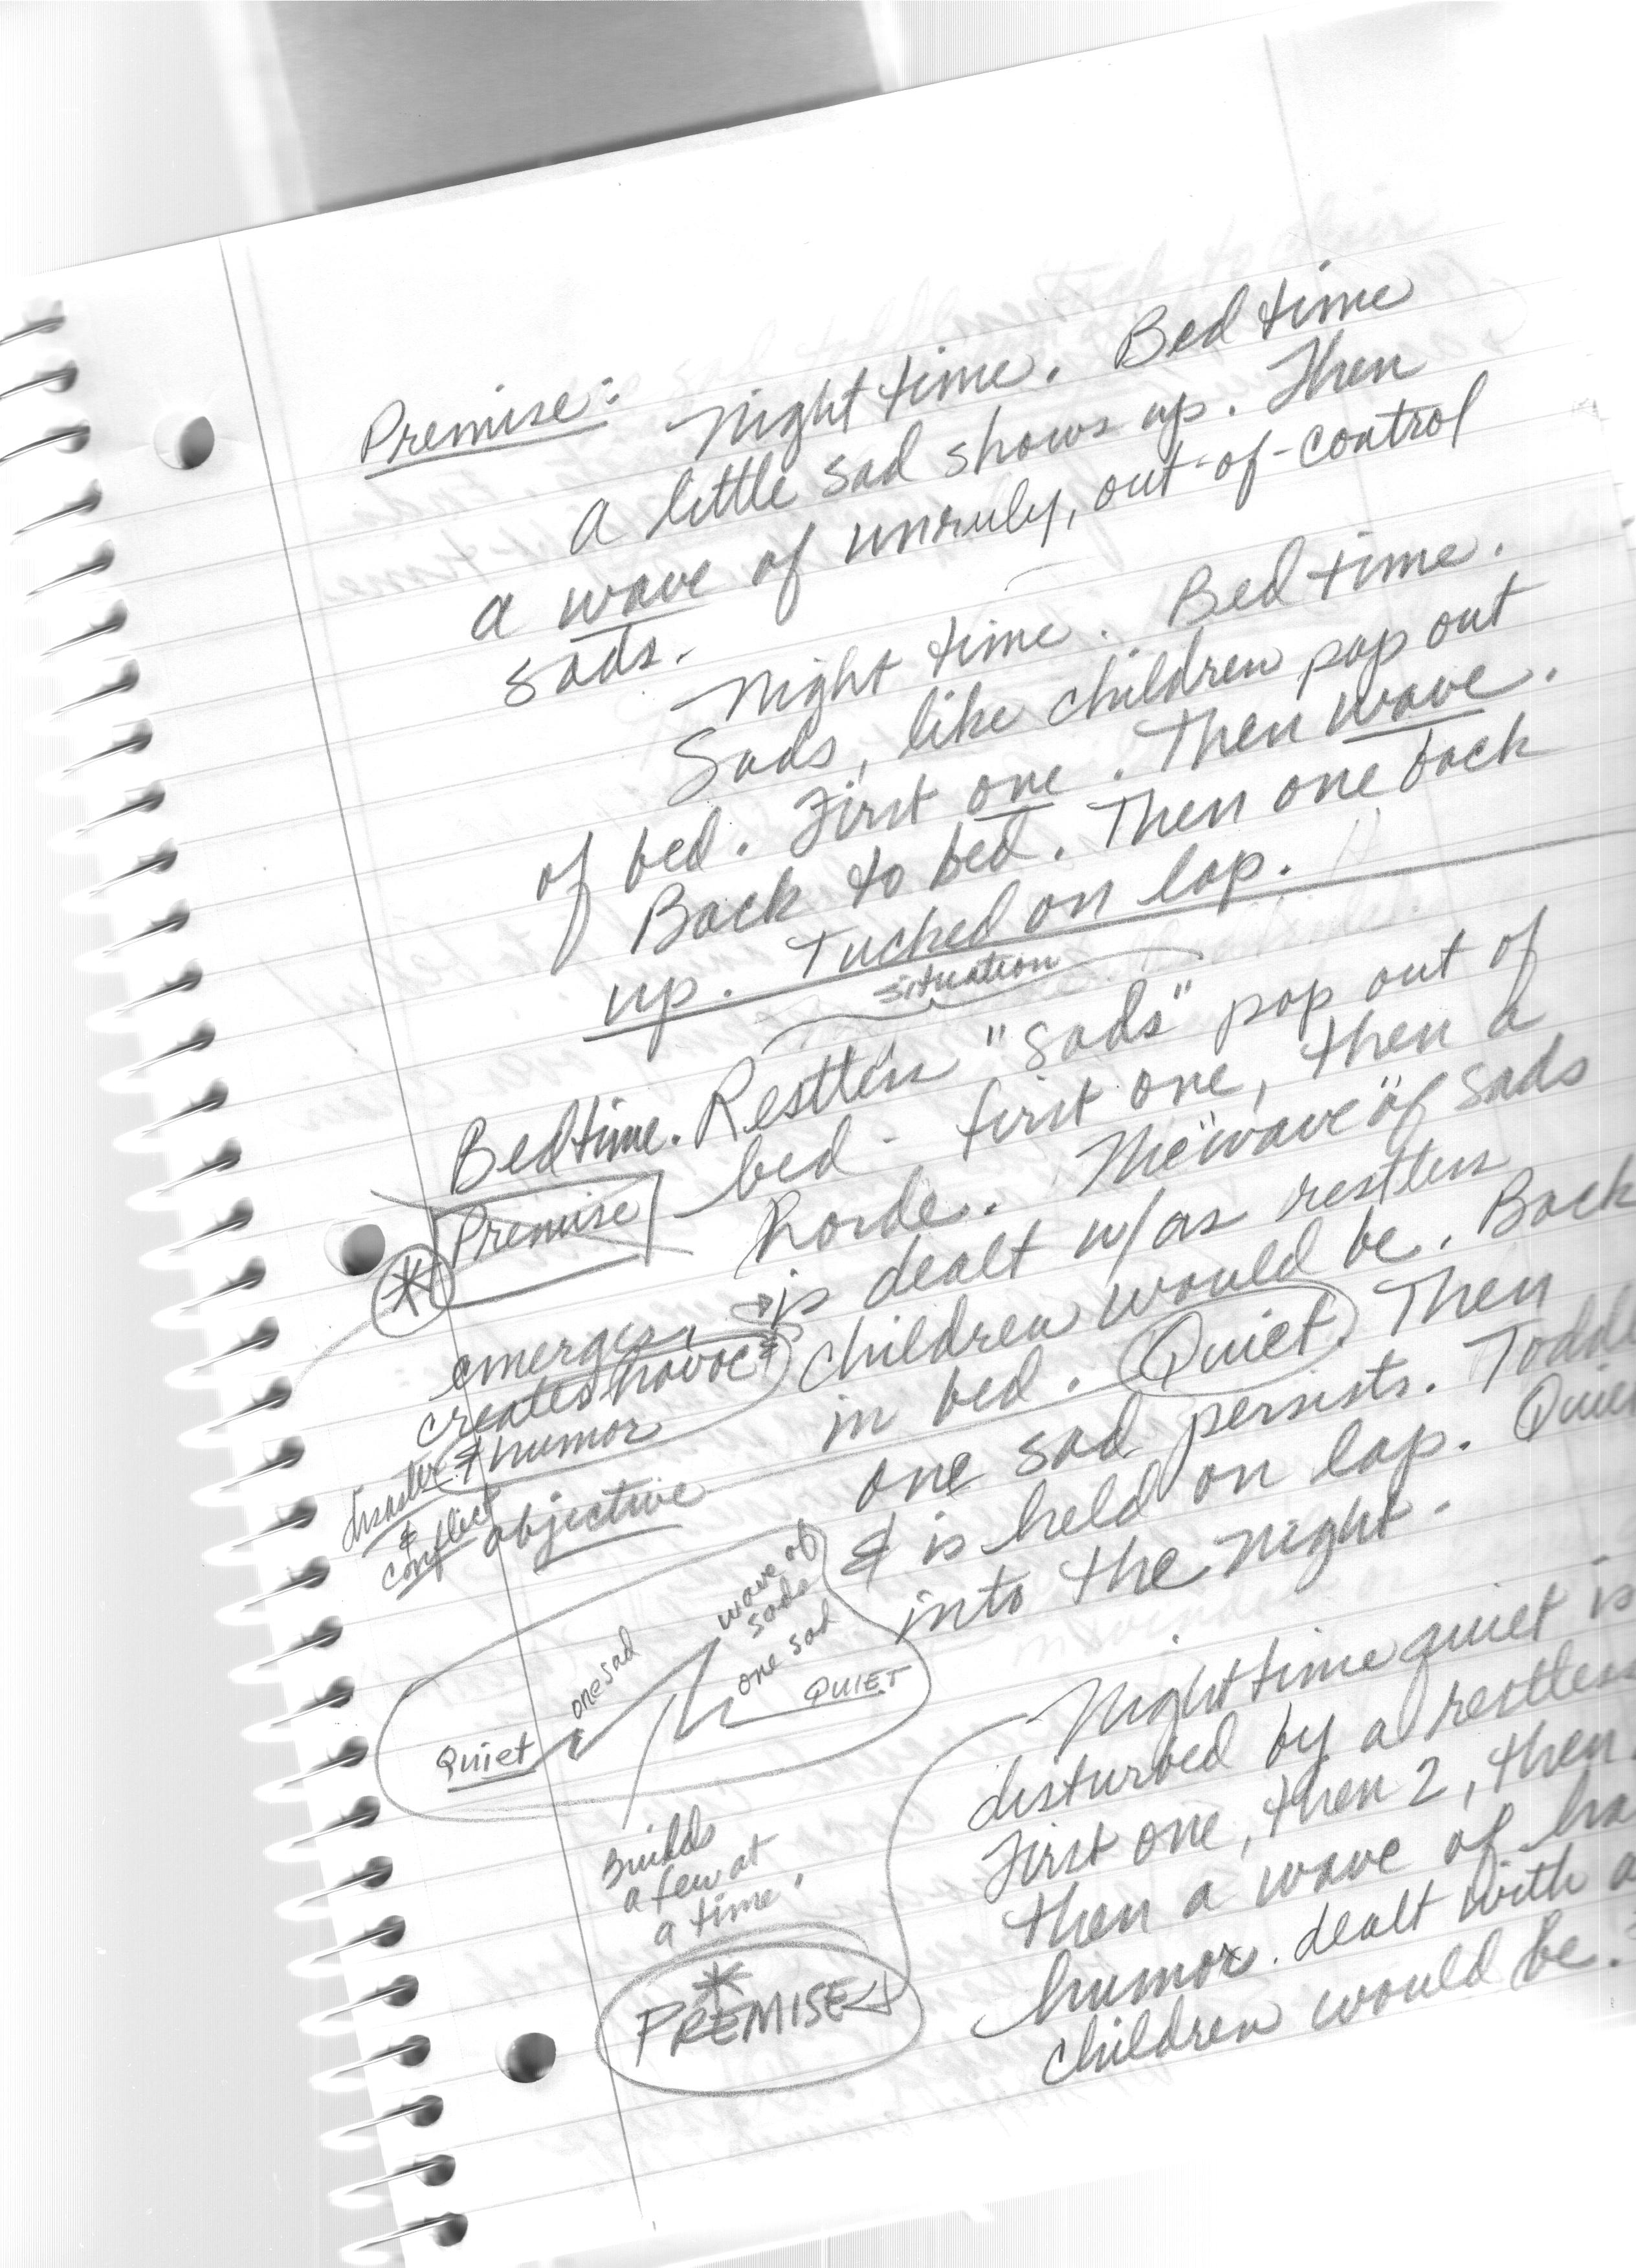 Premise: Night time. Bed time
A little sad shows up. Then
a wave of unruly, out-of-control
sads.
Night time. Bed time.
Sads, like children pop out
of bed. First one. Then wave.
Back to bed. Then one back
up. Tucked on lap.
situation
Bedtime. Restless "sads" pop out of
Premise
bed. first one, then a
horde. The "wave" of sads
*
emerges,
creates havoc &
& humor
disaster
&
conflict
objective
is dealt w/as restless
children would be. Back
in bed. Quiet. Then
one sad persists.
& is held on lap. Quiet
into the night.
Quiet
one sad
wave of
sads
one sad
QUIET
Builds
a few at
a time.
*
PREMISE
Nighttime quiet is
disturbed by a restless
First one, then 2, then
then a wave of
humor. dealt with
children would be.